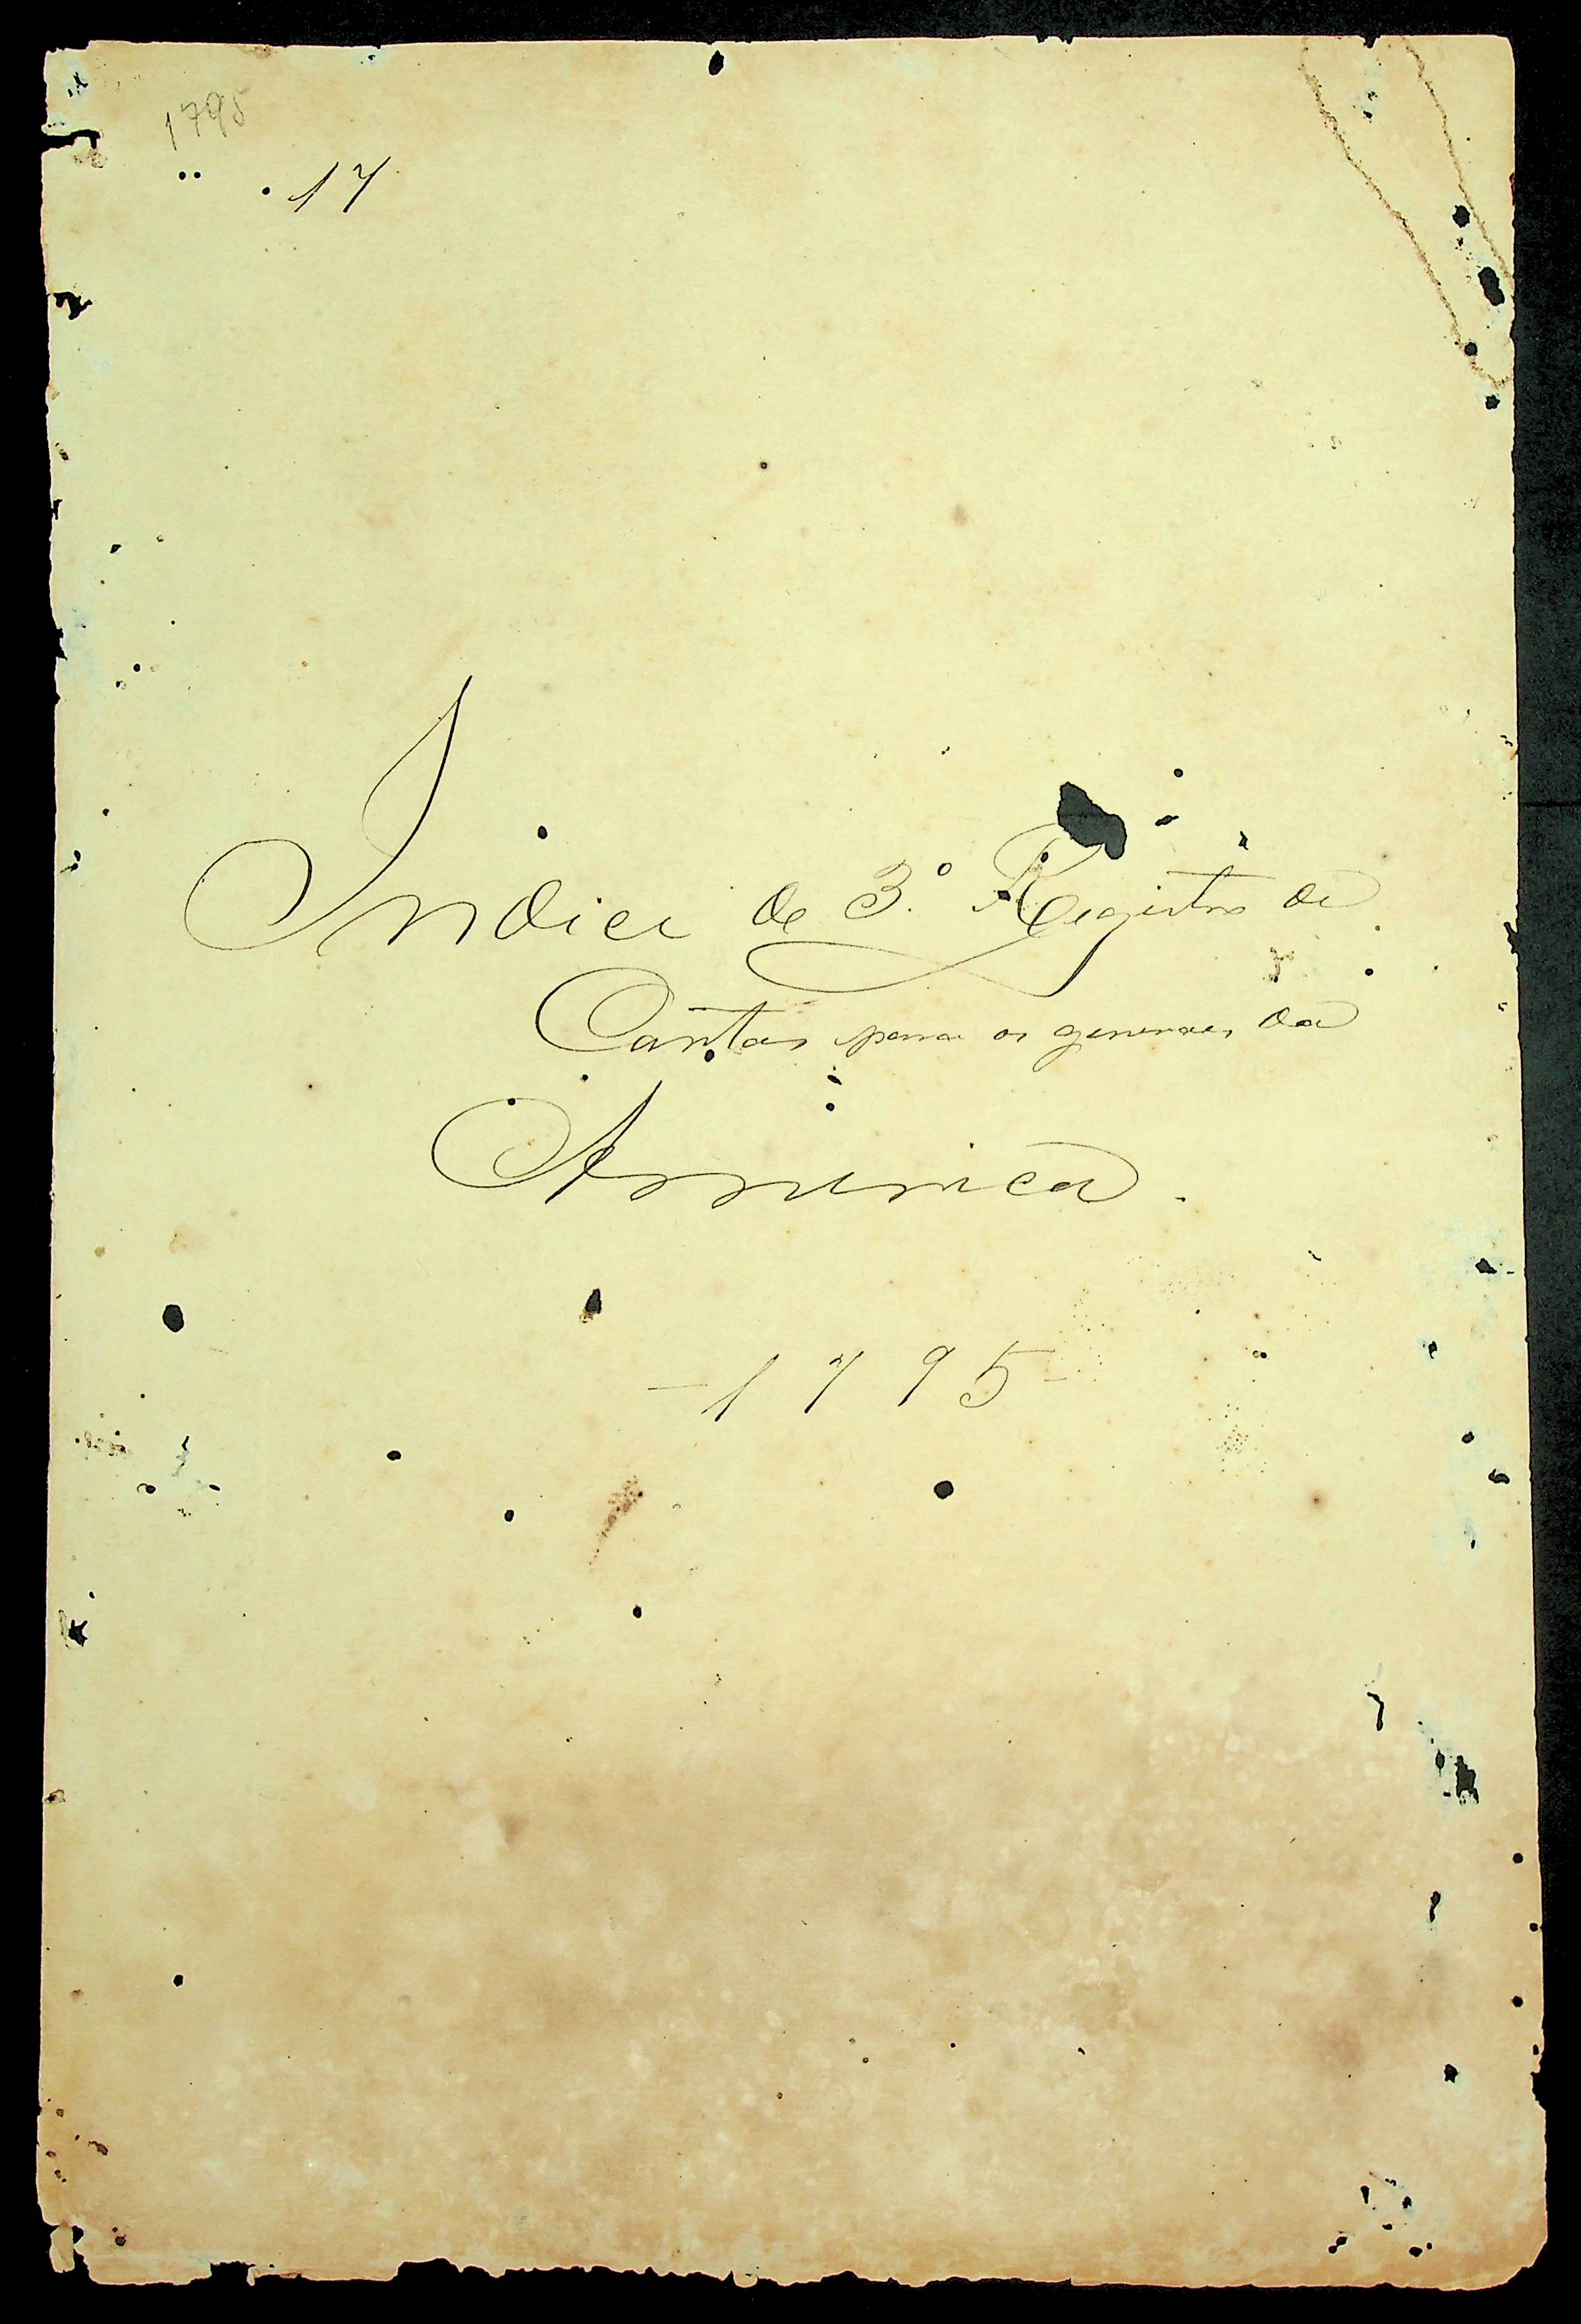 1795
17
Indice de 3º Registro de
Cartas para os generaes da
America.
-1795-